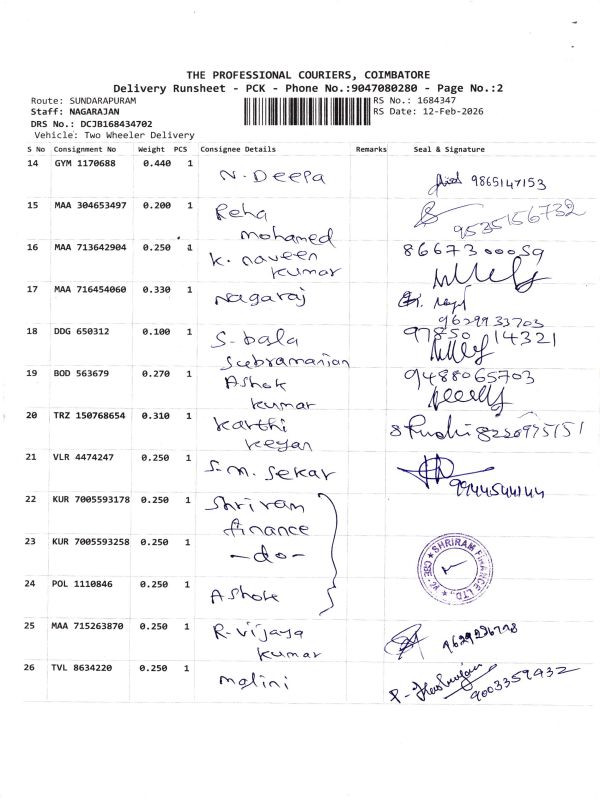 THE PROFESSIONAL COURIERS, COIMBATORE
Delivery Runsheet - PCK - Phone No.:9047080280 - Page No.:2
Route: SUNDARAPURAM
RS No.: 1684347
Staff: NAGARAJAN
RS Date: 12-Feb-2026
DRS No.: DCJB168434702
Vehicle: Two Wheeler Delivery
S No Consignment No Weight PCS Consignee Details Remarks Seal & Signature
14 GYM 1170688 0.440 1 N. Deepa 9865147153
15 MAA 304653497 0.200 1 Reha
mohamed 9535156732
16 MAA 713642904 0.250 1 K. naveen
kumar 8667300059
17 MAA 716454060 0.330 1 Nagaraj
9629933703
18 DDG 650312 0.100 1 S. bala
Subramanian 9785014321
19 BOD 563679 0.270 1 Ashok
kumar 9488065703
20 TRZ 150768654 0.310 1 Karthi
keyan 8220975151
21 VLR 4474247 0.250 1 S.M. Sekar
9944544144
22 KUR 7005593178 0.250 1 Shriram
finance
23 KUR 7005593258 0.250 1 -do-
SHRIRAM FINANCE LTD.,
24 POL 1110846 0.250 1 Ashok
25 MAA 715263870 0.250 1 R. vijaya
kumar
26 TVL 8634220 0.250 1 malini
9003359432